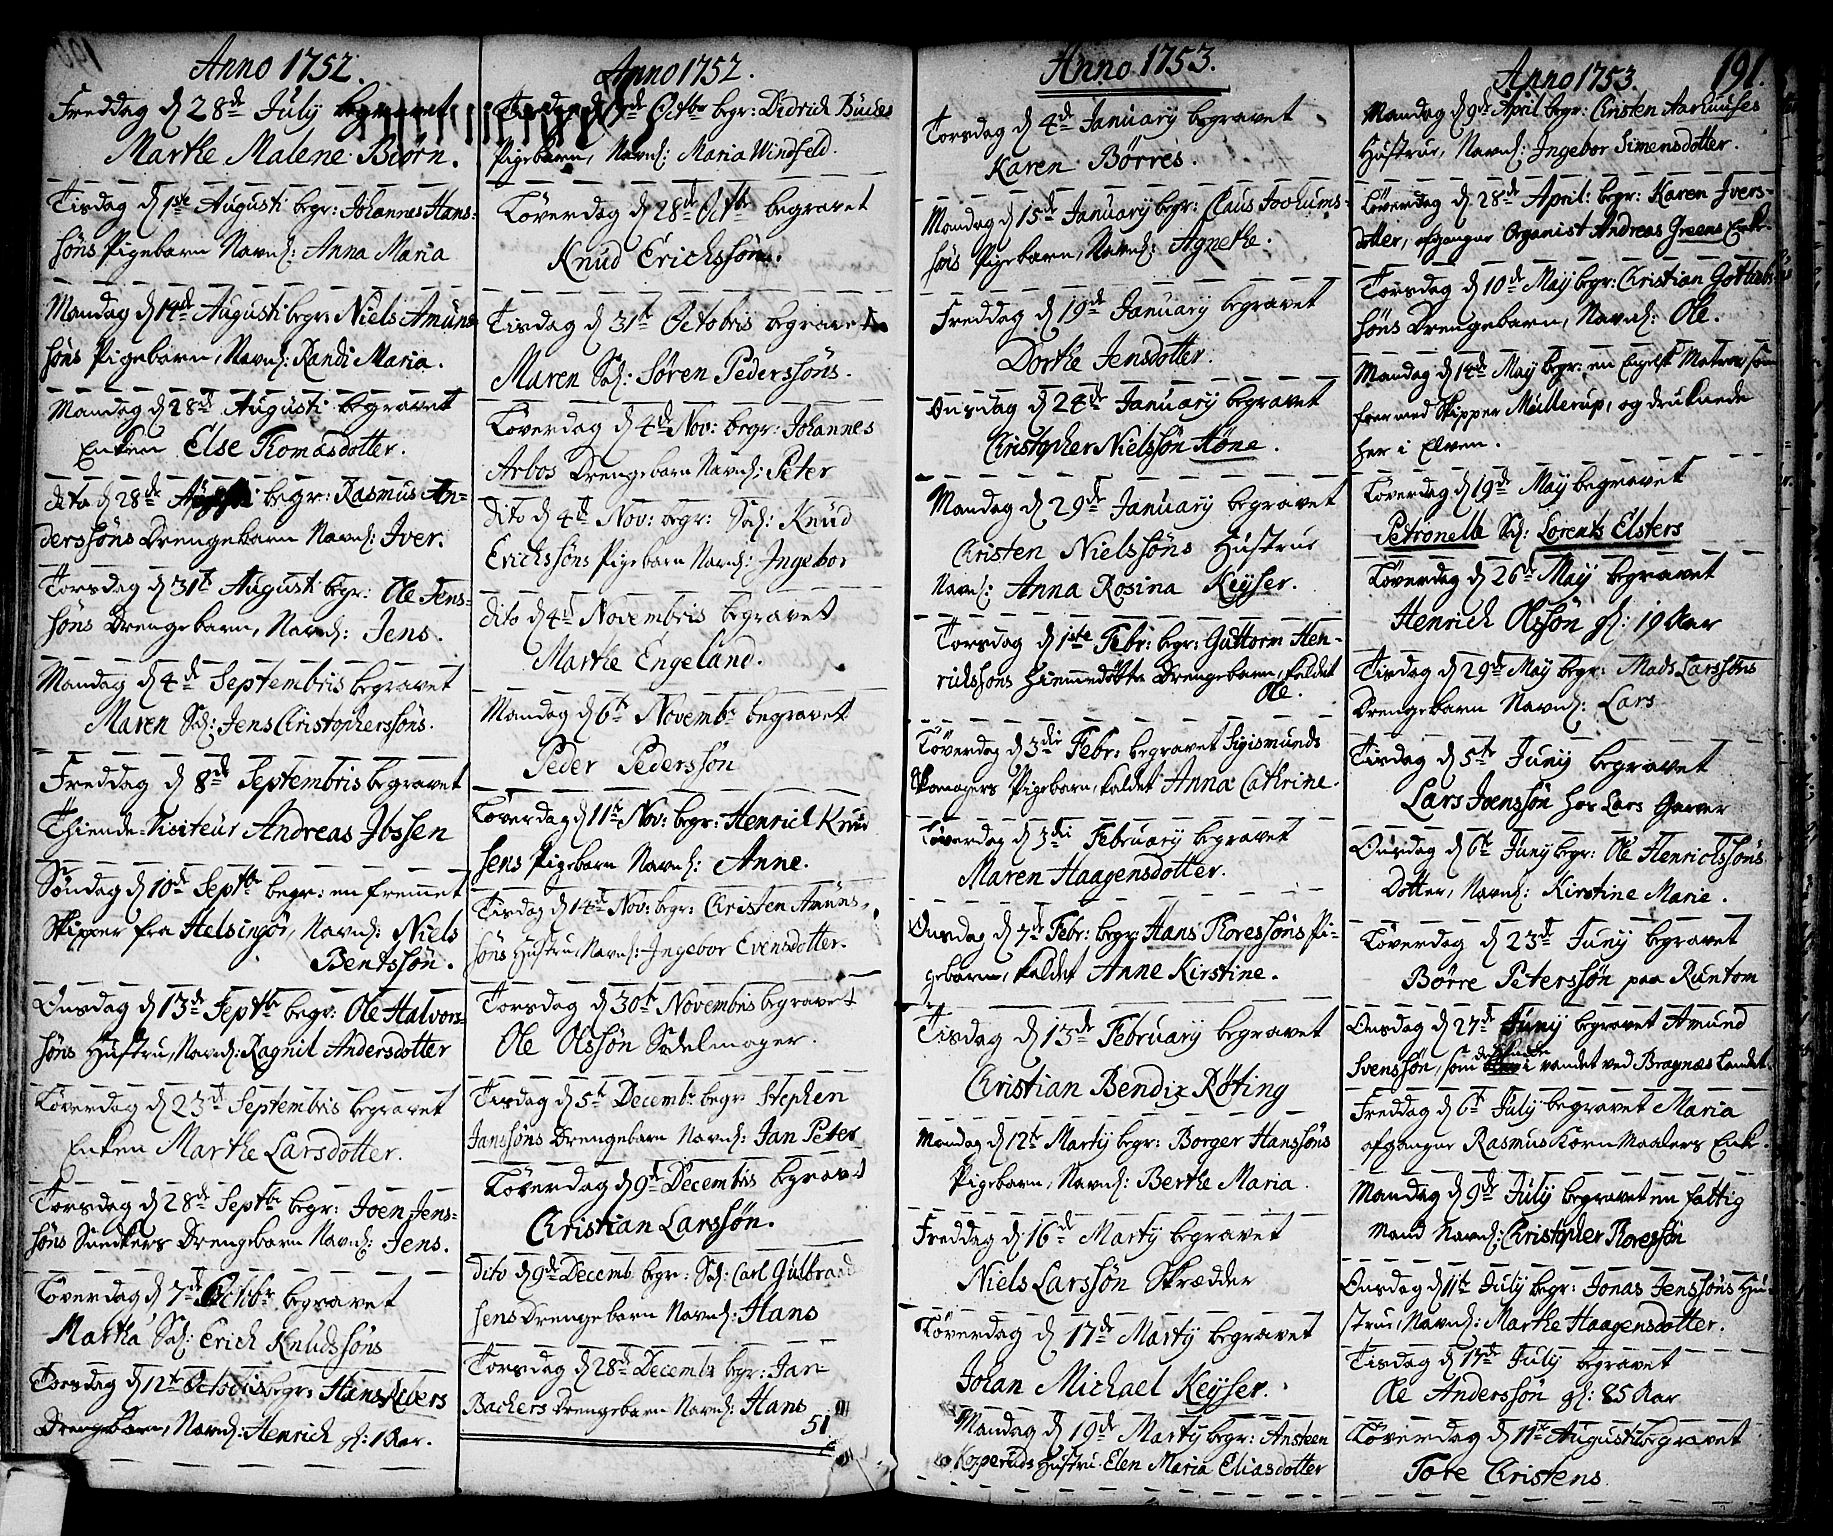 Anno 1752.
Freddag d 28de July begravet
Marthe Malene Biørn.
Tisdag d 1ste Augusti begr: Johannes Hans-
søns Pigebarn Navnl: Anna Maria
Mandag d 14de Augusti begr: Niels Amuns-
søns Pigebarn, Navnl: Randi Maria.
Mandag d 28de Augusti begravet
Enken Else Thomasdotter.
dito d 28de begr: Rasmus An-
derssøns Drengebarn Navnl: Iver.
Torsdag d 31te Augusti begr: Ole Jens-
søns Drengebarn, Navnl: Jens.
Mandag d 4de Septembris begravet
Maren Sal: Jens Christopherssøns.
Freddag d 8de Septembris begravet
Thiende-Visiteur Andreas Ibssen
Søndag d 10de Septbr begr: en fremmet
Skipper fra Helsingør, Navnl: Niels
Bentssøn.
Onsdag d 13de Septbr begr: Ole Halvors-
søns Hustru, Navnl: Ragnil Andersdotter
Løverdag d 23de Septembris begravet
Enken Marthe Larsdotter.
Torsdag d 28de Septbr begr: Joen Jens-
søns Snedkers Drengebarn Navnl: Jens.
Løverdag d 7de Octbr begravet
Martha Sal: Erich Knudssøns
Torsdag d 12te Octobris begr: Hans
Drengebarn, Navnl: Henrich gl: 1 Aar.
Anno 1752.
Octbr begr: Didrich
Pigebarn, Navnl: Maria Windfeld.
Løverdag d 28de Octbr begravet
Knud Erichssøn.
Tisdag d 31te Octobris begravet
Maren Sal: Søren Pederssøns.
Løverdag d 4de Nov: begr: Johannes
Arbos Drengebarn Navnl: Peter
Dito d 4de Nov: begr: Sal: Knud
Erichssøns Pigebarn Navnl: Ingebor
dito d 4de Novembris begravet
Marthe Engeland.
Mandag d 6te Novembr begravet
Peder Pederssøn
Løverdag d 11te Nov: begr: Henrich Knud
sens Pigebarn Navnl: Anne.
Tisdag d 14de Nov: begr: Christen Amuns-
søns Hustru, Navnl: Ingebor Evensdotter.
Torsdag d 30te Novembris begravet
Ole Olssøn Sadelmager.
Tisdag d 5te Decembr begr: Stephen
Janssøns Drengebarn Navnl: Jan Peter
Løverdag d 9de Decembris begravet
Christian Larssøn.
dito d 9de Decemb begr: Sal: Carl Gulbrand
sens Drengebarn Navnl: Hans
Torsdag d 28de Decembr begr: Jan
Bachers Drengebarn Navnl: Hans
51
Anno 1753.
Torsdag d 4de January begravet
Karen Børres.
Mandag d 15de January begr: Claus Jochums-
søns Pigebarn, Navnl: Agnethe.
Freddag d 19de January begravet
Dorthe Jensdotter.
Onsdag d 24de January begravet
Christopher Nielssøn Høne.
Mandag d 29de January begravet
Christen Nielssøns Hustrue
Navnl: Anna Rosina Keyser.
Torsdag d 1ste Febr: begr: Guttorm Hen-
richssøns Drengebarn, kaldet
Ole.
Løverdag d 3die Febr: begravet Sigismunds
Skomagers Pigebarn, kaldet Anna Cathrine.
Løverdag d 3die February begravet
Maren Haagensdotter.
Onsdag d 7de Febr: begr: Hans Thoressøns Pi-
gebarn, kaldet Anne Kirstine.
Tisdag d 13de February begravet
Christian Bendix Røting
Mandag d 12te Marty begr: Borger Hanssøns
Pigebarn, Navnl: Berthe Maria.
Freddag d 16de Marty begravet
Niels Larssøn Skrædder
Løverdag d 17de Marty begravet
Johan Michael Keyser.
Mandag d 19de Marty begr: Ansteen
Hustru Elen Maria Eliasdotter
Anno 1753.
191.
Mandag d 9de April begr: Christen Aarhuuses
Hustrue, Navnl: Ingebor Simensdotter.
Løverdag d 28de April: begr: Karen Ivers-
dotter, afgangne Organist Andreas Greens Enke.
Torsdag d 10de May begr: Christian Gottlieb-
søns Drengebarn, Navnl: Ole.
Mandag d 14de May begr: en Engelsk Matros, som
foer med Skipper Müllerup, og druknede
her i Elven.
Løverdag d 19de May begravet
Petronella Sal: Lorents Elsters
Løverdag d 26de May begravet
Henrich Olssøn gl: 19 Aar
Tisdag d 29de May begr: Mads Larssøns
Drengebarn Navnl: Lars
Tisdag d 5te Juny begravet
Lars Joenssøn hos Lars Garver
Onsdag d 6te Juny begr: Ole Henrichssøns
Dotter, Navnl: Kirstine Marie.
Løverdag d 23de Juny begravet
Børre Peterssøn paa Runtom
Onsdag d 27de Juny begravet Amund
Svenssøn, som døde i vandet ved Bragnæs Landet.
Freddag d 6te July begravet Maria
afgangne Rasmus Korn Maalers Enke.
Mandag d 9de July begravet en fattig
Mand Navnl: Christopher Thoressøn
Onsdag d 11te July begr: Jonas Jenssøns Hu-
strue, Navnl: Marthe Haagensdotter.
Tisdag d 17de July begravet
Ole Anderssøn gl: 85 Aar
Løverdag d 11te Augusti begravet
Tore Christens